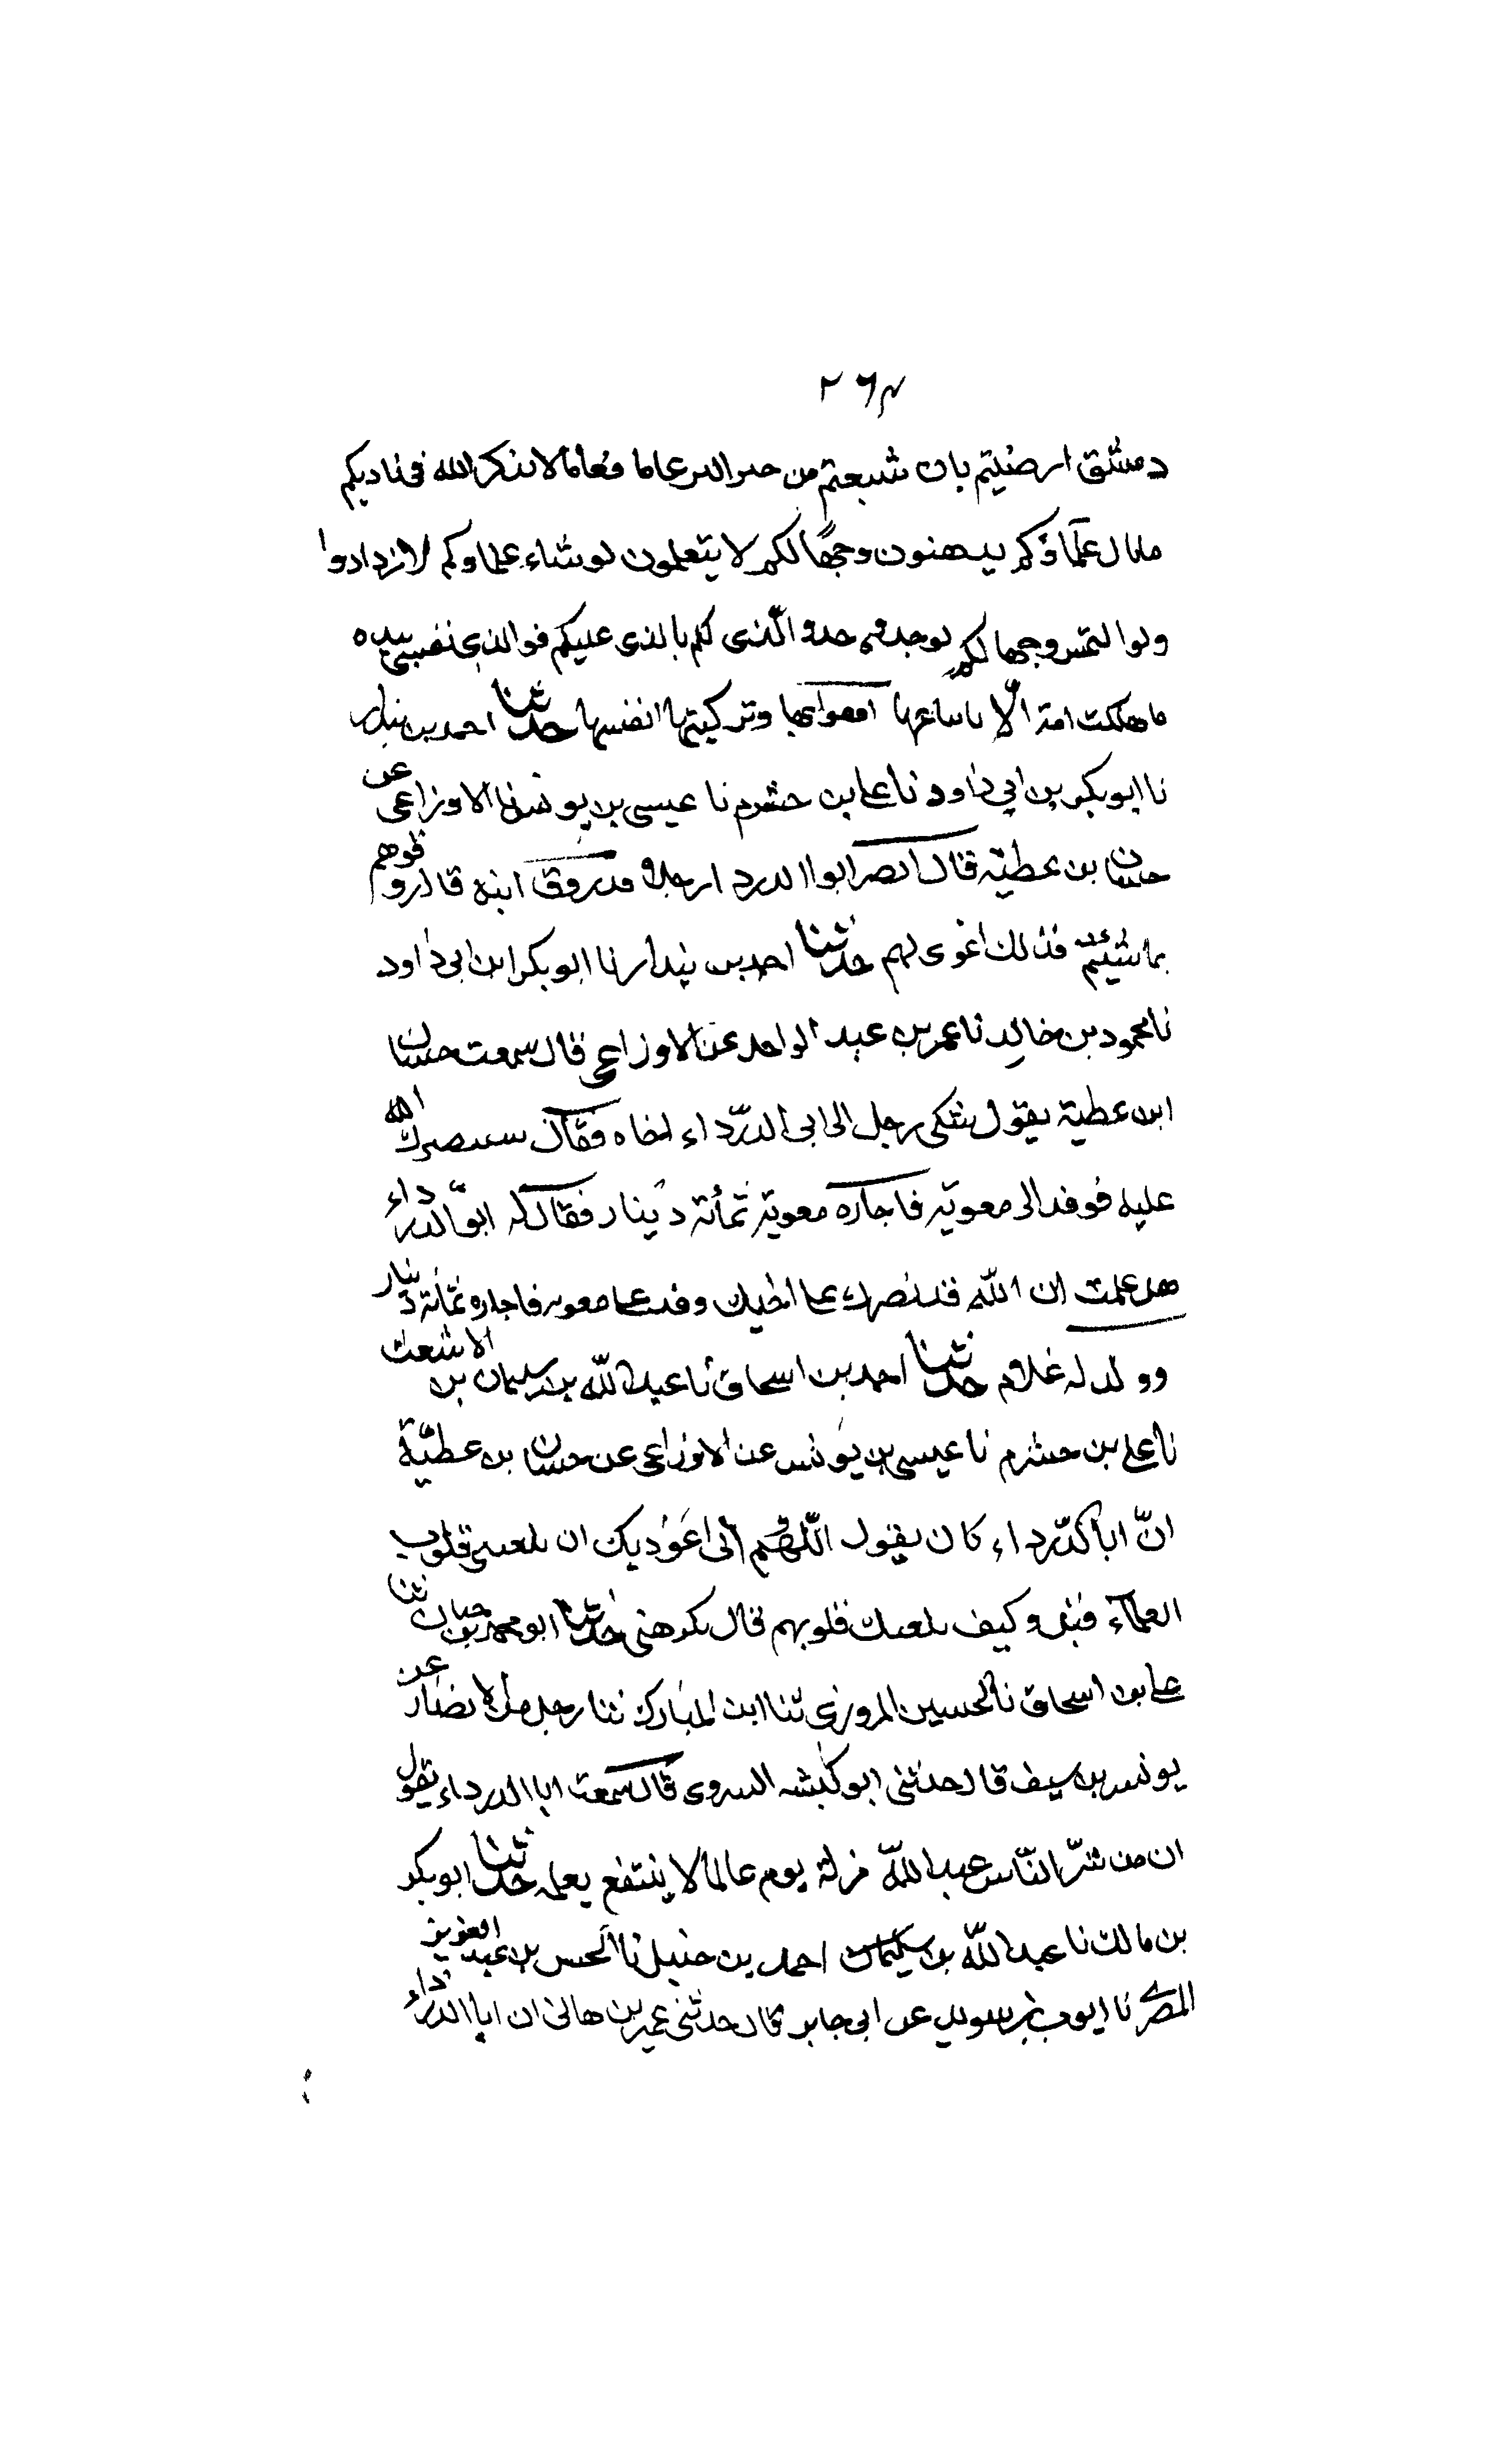 ٢٦٤
دمشق ارضيتم بان شبعتم من عاما فعاما لا يذكر الله فى ناديكم
مابال علماؤكم يذهنون وجهالكم لا يتعلمون لو شاء علماوكم لازدادوا
ولو التمس وجهالكم لوجدوه خذو الّذى لكم بالذى عليكم فو الذى نفسى بيده
ما هلكت امة الّا وتزكيتها انفسها حدثنا احمد بن بندار
نا ابو بكر بن ابي داود نا علي بن خشرم نا عيسى بن يونس الاوزاعى عن
حسان بن عطيّة قال ابصر ابوا الدرداء رجلا ابنه قال زوقوهم
بما شئتم فذلك اغوى لهم حدثنا احمد بن بندار نا ابو بكر ابن ابى داود
نا محمود بن خالد نا عمر بن عبد الواحد عن الاوزاعى قال سمعت حسان
ابن عطية يقول شتكى رجل الى ابى الدرّداء اخاه فقال سينصرك الله
عليه فوفد الى معوية فاجازه معوية بمأئة دينار فقال له ابو الدرداء
هل علمت ان الله قد نصرك على اخيك وفد على معويه فاجازه بمائة دينار
وولد له غلام حدثنا احمد بن اسحاق نا عبد الله بن سليمان بن الاشعث
نا على بن خشرم نا عيسى بن يونس عن الاوزاعى عن حسان بن عطيّة
انّ ابا الدّرداء كان يقول اللّهم انى اعوذ بك ان تلعننى قلوب
العلماء قيل وكيف تلعنك قلوبهم قال تكرهنى حدثنا ابو محمد بن حيان ثنا
على بن اسحاق نا الحسين المروزى ثنا ابن المبارك ثنا رجل من الانصار عن
يونس بن سيف قال حدثنى ابو كبشه السروى قال سمعت ابا الدرداء يقول
ان من شرّ النّاس عند اللّه منزلة يوم عالما لا ينتفع بعلمه حدثنا ابو بكر
بن مالك نا عبد اللّه بن سليمان احمد بن حنبل نا الحسن بن عبد العزيز
المصرى نا ايوب بن سويد عن ابى جابر قال حدثنى عمير بن هانئ ان ابا الدرداء